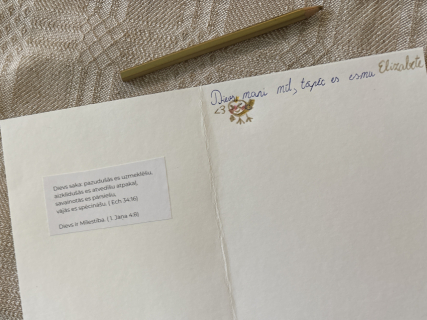 Dievs saka: pazudušās es uzmeklēšu,
aizklīdušās es atvedīšu atpakaļ,
savainotās es pārsiešu,
vājās es spēcināšu. ( Ech 34:16)
Dievs ir Mīlestība. ( 1. Jāņa 4:8)
Dievs mani mīl, tāpēc es esmu Elizabete
<3